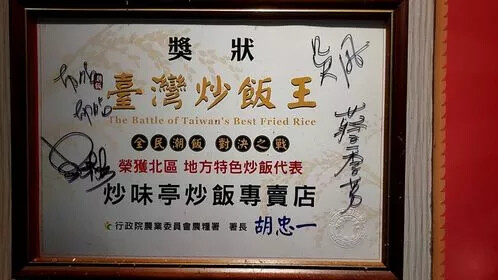 獎狀
臺灣炒飯王
The Battle of Taiwan's Best Fried Rice
全民潮飯 對決之戰
榮獲北區 地方特色炒飯代表
炒味亭炒飯專賣店
行政院農業委員會農糧署 署長 胡忠一